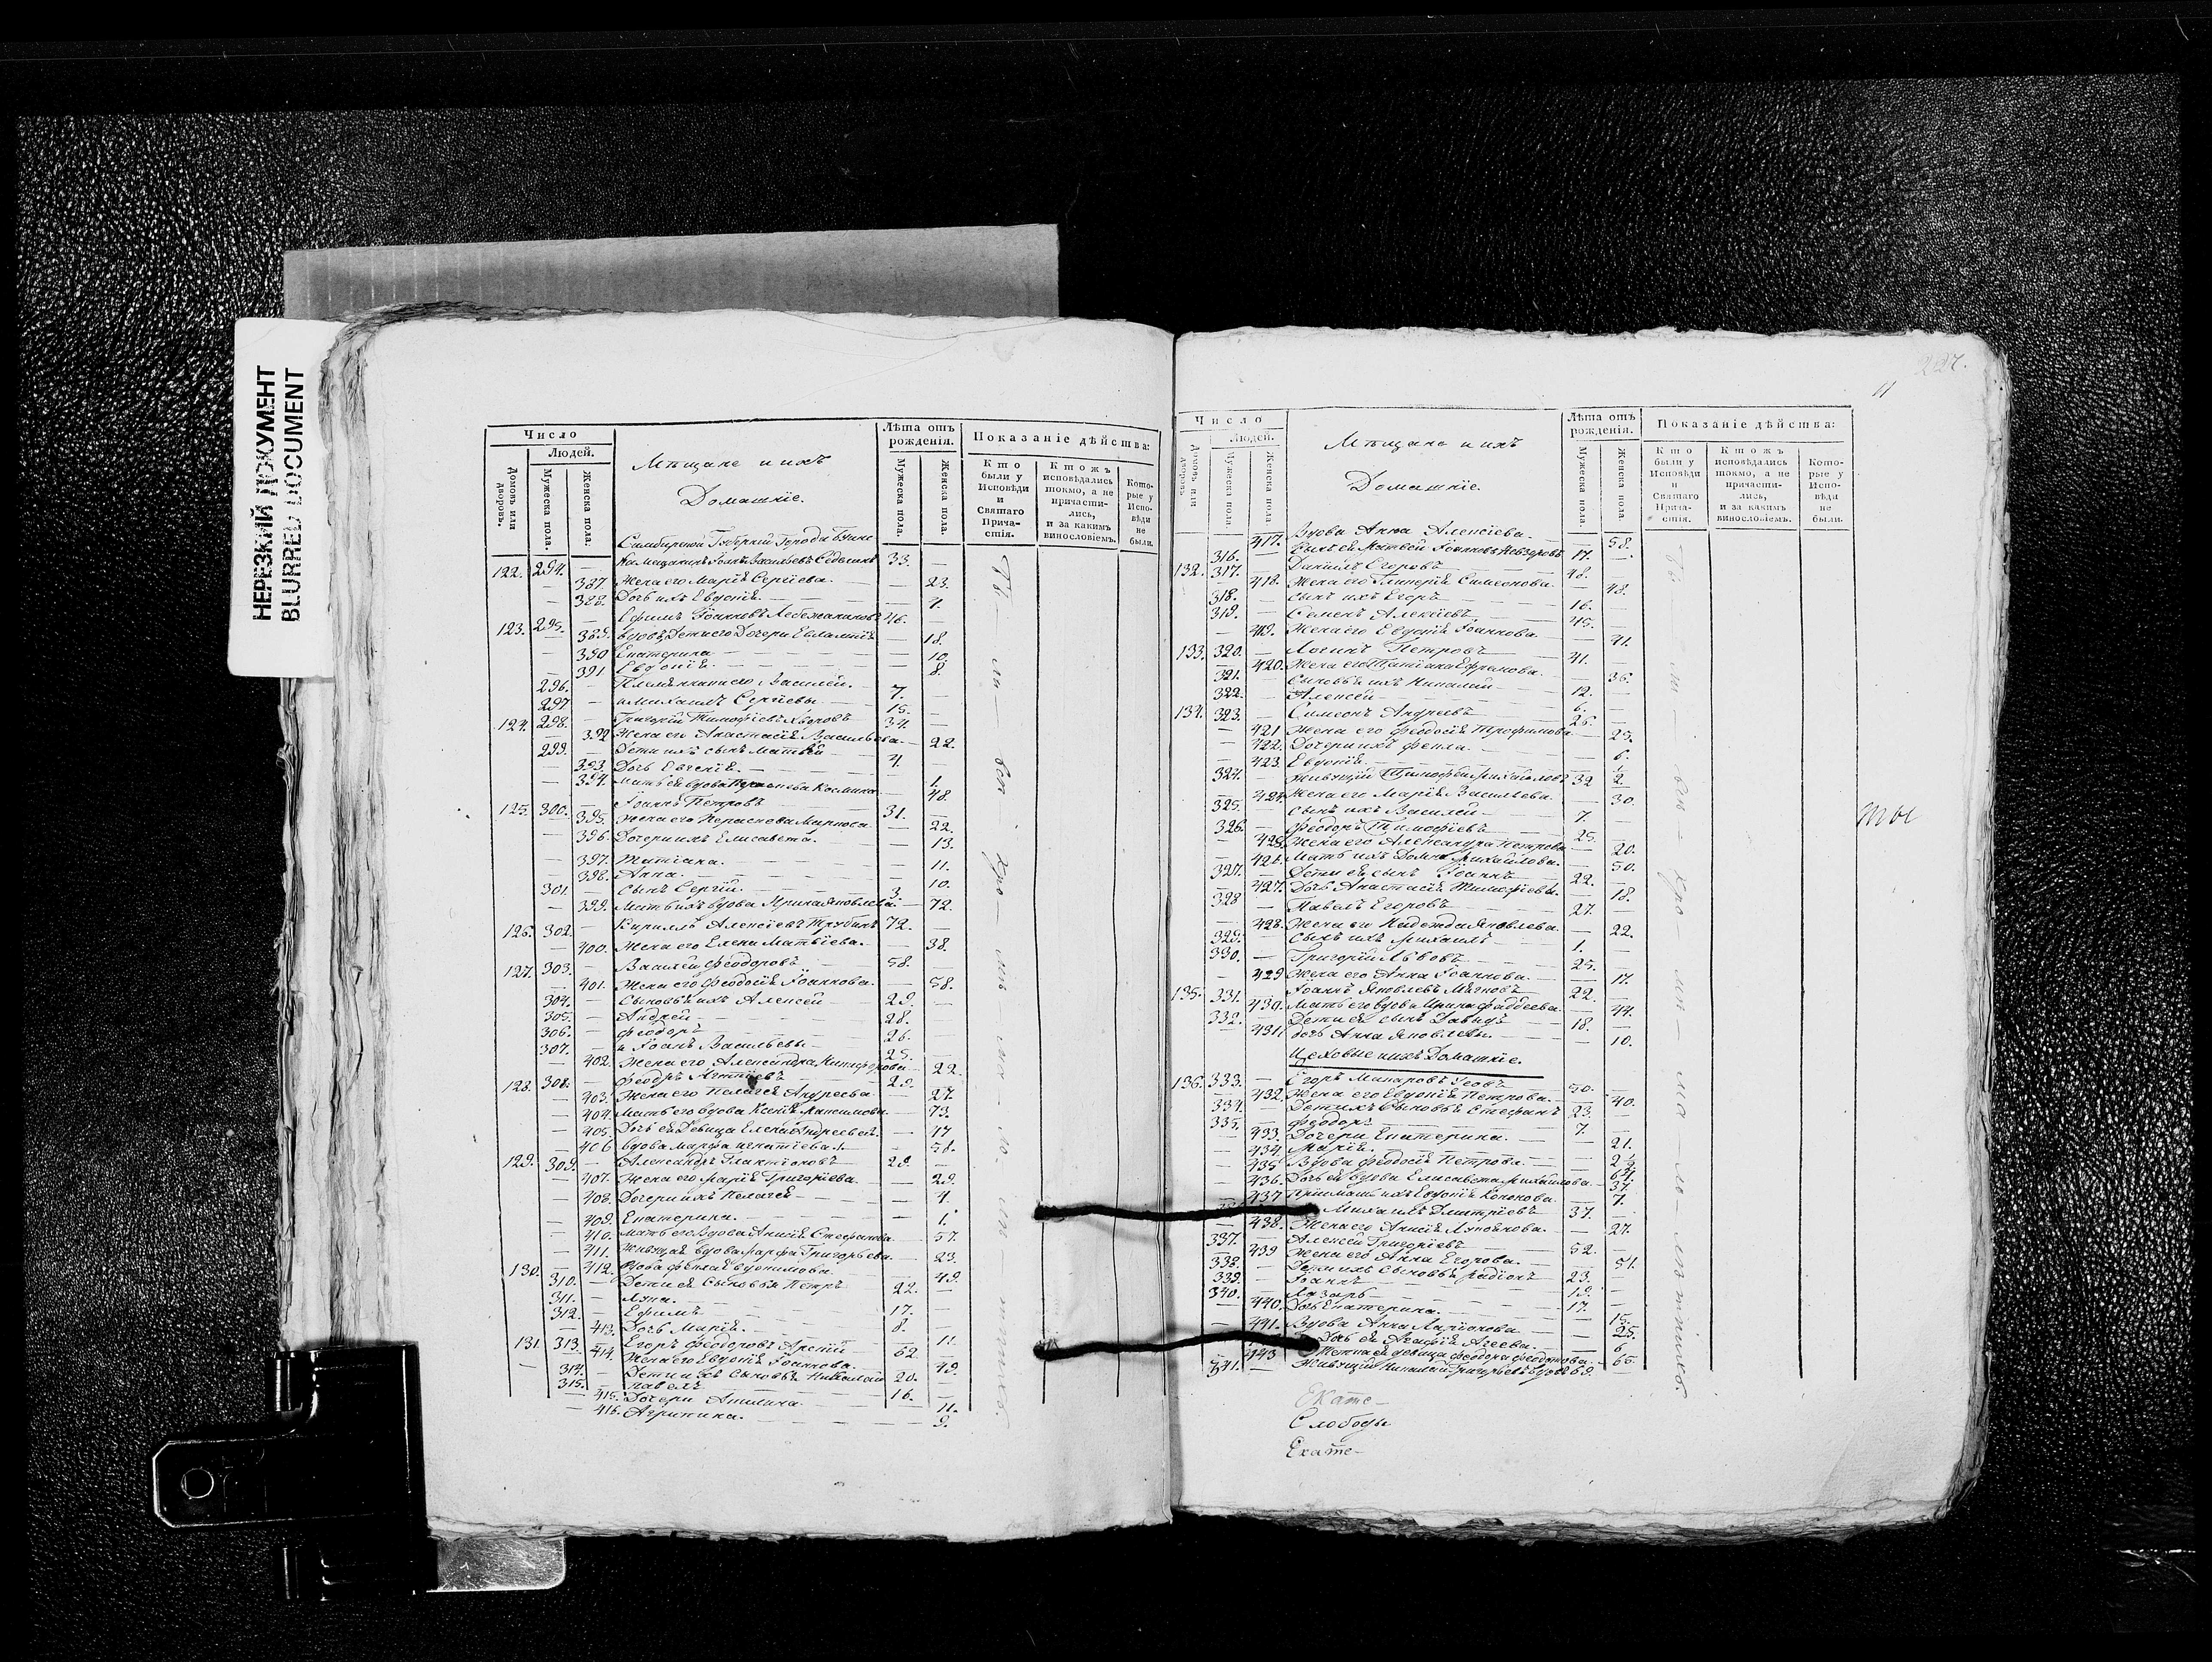 НЕРЕЗКИЙ ДОКУМЕНТ
BLURRED DOCUMENT
Число
Людей.
Домовъ или дворовъ.
Мужеска пола.
Женска пола.
Мѣщане и ихъ
Домашніе.
Лѣта отъ рожденія.
Мужеска пола.
Женска пола.
Показаніе дѣйства:
Кто были у Исповѣди и Святаго Прича-стія.
Ктожъ исповѣдались токмо, а не причасти-лись, и за какимъ винословіемъ.
Кото-рые у Испо-вѣди не были.
Симбирской Губерніи Города Буин
122. 294. — на мѣщанинъ Іоаннъ Васильевъ 33. —
— 387. Жена его Марія Сергіева. — 23.
— 388. Дочь ихъ Евдокія. — 4.
123. 295. — Ефимъ Іоанновъ 46.
— 389. вдовъ, Дети его Дочери Евлампія — 18.
— 390 Екатерина — 10.
— 391. Евдокія. — 8.
296. — Племянники его Василій. 7. —
297 — и Михаилъ Сергіевы 15. —
124. 298. — Григорій Тимофіевъ 34. —
— 392 Жена его Анастасія Васильева. — 22.
299. — Дети ихъ сынъ Матвѣй 4. —
— 393. Дочь Евгенія. — 1.
— 394. Мать ея вдова Космина — 48.
125. 300. — Іоаннъ Петровъ 31. —
— 395. Жена его Параскева Маркова — 22.
— 396. Дочери ихъ Елисавета. — 13.
— 397. Татіана. — 11.
— 398. Анна. — 10.
301. — Сынъ Сергій. 3 —
— 399. Мать ихъ вдова Ирина Яковлева. — 72.
126. 302. — Кириллъ Алексіевъ Трубинъ 72. —
— 400. Жена его Елена Матвіева. — 38.
127. 303. — Василій Феодоровъ 58. —
— 401. Жена его Феодосія Іоаннова. — 58.
304. — Сыновья ихъ Алексей 29. —
305. — Андрей 28.
306. — Феодоръ 26.
307. — и Іоаннъ Васильевы 25. —
— 402. Жена его Александра Никифорова — 22.
128. 308. — Феодоръ 29. —
— 403. Жена его Пелагея Андреева — 27.
— 404. Мать его вдова Ксенія Максимова — 73.
— 405. Дочь ея Девица Елена Андреева. — 47
— 406 вдова Марфа Игнатіева. — 58.
129. 309. — Александръ Галактіоновъ 29. —
— 407. Жена его Марія Григоріева. — 29.
— 408. Дочери ихъ Пелагея — 4.
— 409. Екатерина. — 1.
— 410. Мать его Вдова Анисія Стефанова — 57.
— 411. Живущая вдова Марфа Григорьева. — 23.
130. — 412. Вдова Фекла — 49.
310. — Дети ея Сыновья Петръ 22. —
311. — Лука.
312. — Ефимъ 17. —
— 413. Дочь Марія. 8. 11.
131. 313. — Егоръ Феодоровъ 62. —
— 414. Жена его Евдокія Іоаннова. — 49.
— 314. — Дети ихъ Сыновья Николай 20. —
315. — Павелъ 16. —
— 415. Дочери Акилина — 11.
— 416. Агрипина. — 9.
227.
Число
Людей.
Домовъ или дворовъ.
Мужеска пола.
Женска пола.
Мѣщане и ихъ
Домашніе.
Лѣта отъ рожденія.
Мужеска пола.
Женска пола.
Показаніе дѣйства:
Кто были у Исповѣди и Святаго Прича-стія.
Ктожъ исповѣдались токмо, а не причасти-лись, и за какимъ винословіемъ.
Кото-рые у Испо-вѣди не были.
— 417. Вдова Анна Алексіева. — 58.
316. — Сынъ ея Матвей Іоанновъ 17. —
132. 317. — Даніилъ Егоровъ 48. —
— 418. Жена его Гликерія Симеонова — 48.
318. — Сынъ ихъ Егоръ 16. —
319. — Семенъ Алексіевъ 45. —
— 419. Жена его Евдокія Іоаннова — 41.
133. 320. — Логинъ Петровъ 41. —
— 420. Жена его Татіана Ефремова. — 36.
321. — Сыновья ихъ Николай 12. —
322. — Алексей 6. —
134. 323. — Симеонъ Андреевъ 26. —
— 421 Жена его Феодосія Трофимова — 25.
— 422. Дочери ихъ Фекла. — 6.
— 423. Евдокія. — 1/2
324. — Живущій Тимофей Михайловъ 32 —
— 424. Жена его Марія Васильева. — 30.
325. — Сынъ ихъ Василій 7. —
326. — Феодоръ Тимофіевъ 25. —
— 425. Жена его Александра Петрова — 20.
— 426. Мать ихъ Домна Михайлова. — 50.
327. — Дети ея сынъ Іоаннъ 22. —
— 427. Дочь Анастасія Тимофіевы. — 18.
328 — Павелъ Егоровъ 27. —
— 428. Жена его Надежда Яковлева. — 22.
329. — Сынъ ихъ Михаилъ 1. —
330. — Григорій Львовъ 25. —
— 429 Жена его Анна Іоаннова. — 17.
135. 331. — Іоаннъ Яковлевъ 22. —
— 430. Мать его вдова Ирина Фаддеева. — 44.
332. — Дети ея сынъ Давыдъ 18. —
— 431. дочь Анна Яковлевы. — 10.
Цеховые и ихъ Домашніе.
136. 333. — Егоръ Макаровъ 50. —
— 432. Жена его Евдокія Петрова. — 40.
334. — Дети ихъ Сыновья Стефанъ 23. —
335. — Феодоръ 7. —
— 433. Дочери Екатерина. — 21.
— 434. Марія. —
— 435 Вдова Феодосія Петрова. — 64.
— 436. Дочь ея вдова Елисавета Михайлова. — 37.
— 437 Евдокія Кононова. — 7.
Михаилъ Дмитріевъ 37. —
— 438. Жена его Анисія Лукьянова. — 27.
337. — Алексей Григоріевъ 52. —
— 439 Жена его Анна Егорова. — 51.
338. — Дети ихъ Сыновья Радіонъ 23. —
339. — Іоаннъ 19. —
340. — Лазарь 17. —
— 440. Дочь Екатерина. — 15.
— 441. Вдова Анна Ларіонова — 25.
Дочь ея Агафія Агеева. — 6
— 443 девица Феодора — 65.
341. — Живущій Николай Григорьевъ вдовъ 69. —
ты
Екате-
Слободы
Екате-